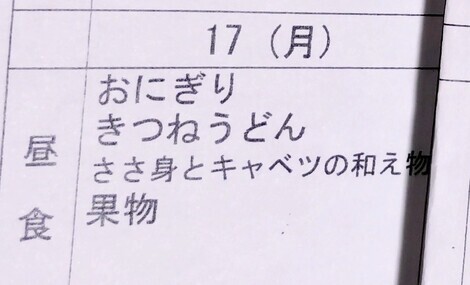 17（月）
昼食
おにぎり
きつねうどん
ささ身とキャベツの和え物
果物